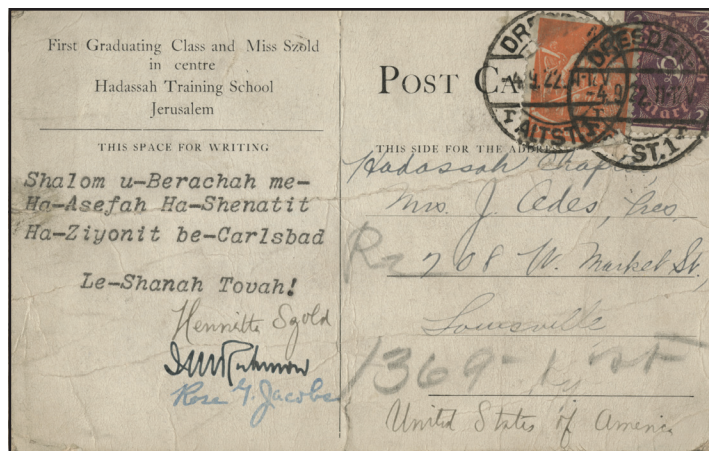 First Graduating Class and Miss Szold
in centre
Hadassah Training School
Jerusalem
THIS SPACE FOR WRITING
Shalom u-Berachah me-
Ha-Asefah Ha-Shenatit
Ha-Ziyonit be-Carlsbad
Le-Shanah Tovah!
Henrietta Szold
Rose G. Jacobs
POST CA
DRESDEN
-4.9.22.
ALTST.1
DRESDEN
-4.9.22
ST.1
THIS SIDE FOR THE ADDRE
Hadassah Chapter
Mrs. J. Ades, Pres.
708 W. Market St.,
Louisville
1369-1
Ky
United States of America